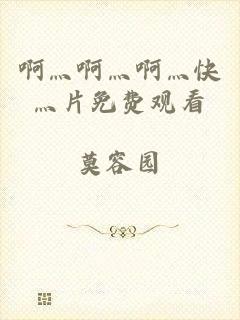 啊灬啊灬啊灬快
灬片免费观看
莫容园